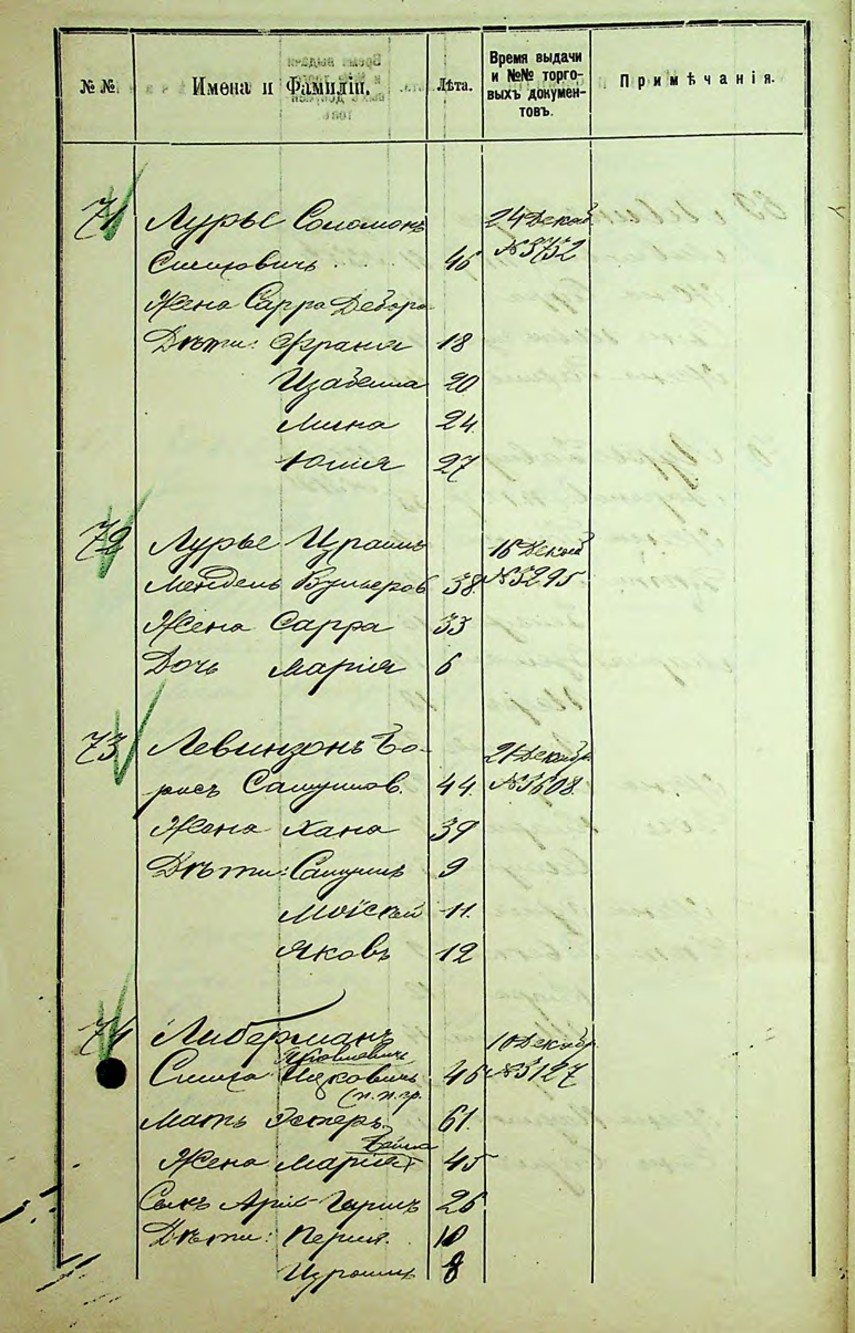 №№ Имена и Фамиліи. Лѣта. Время выдачи и №№ торговыхъ документовъ. Примѣчанія.
71 Лурье Соломонъ 24 Декаб.
Симховичъ 46 №3752
Жена Сарра Дебора
Дѣти: Франя 18
Изабелла 20
Мина 24
Юлія 27
72 Лурье Израиль 16 Декаб
Мендель 38 №3295
Жена Сарра 33
Дочь Марія 6
73 Левинзонъ Бо- 21 Декабр.
рисъ Самуилов. 44 №3608
Жена Хана 39
Дѣти: Самуилъ 9
Мойсей 11.
Яковъ 12
74 Либерманъ 10 Декабр.
Яковлевичъ
Симха Ицковичъ 46 №3127
(п.п.гр.
Мать Эстеръ 61.
Бейла
Жена Марія 45
Сынъ Арія-Гиршъ 26
Дѣти: Перля 10
Израиль 8